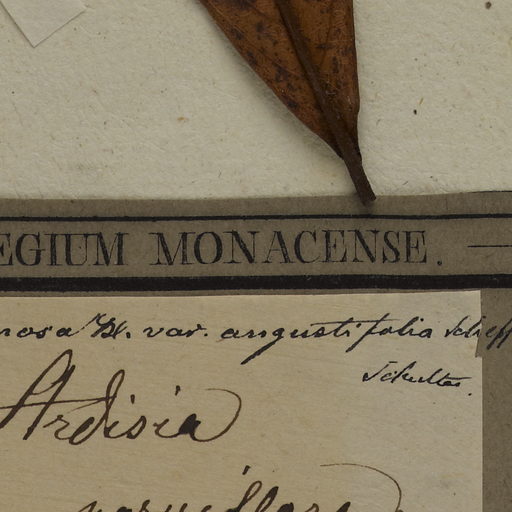 EGIUM MONACENSE.
nosa Bl. var. angustifolia Scheff
Schultes.
Ardisia